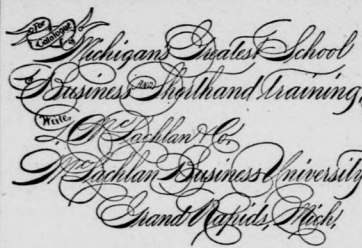 For Catalogue
Michigans Greatest School
of Business and Shorthand Training,
Write,
McLachlan & Co,
McLachlan Business University
Grand Rapids, Mich,